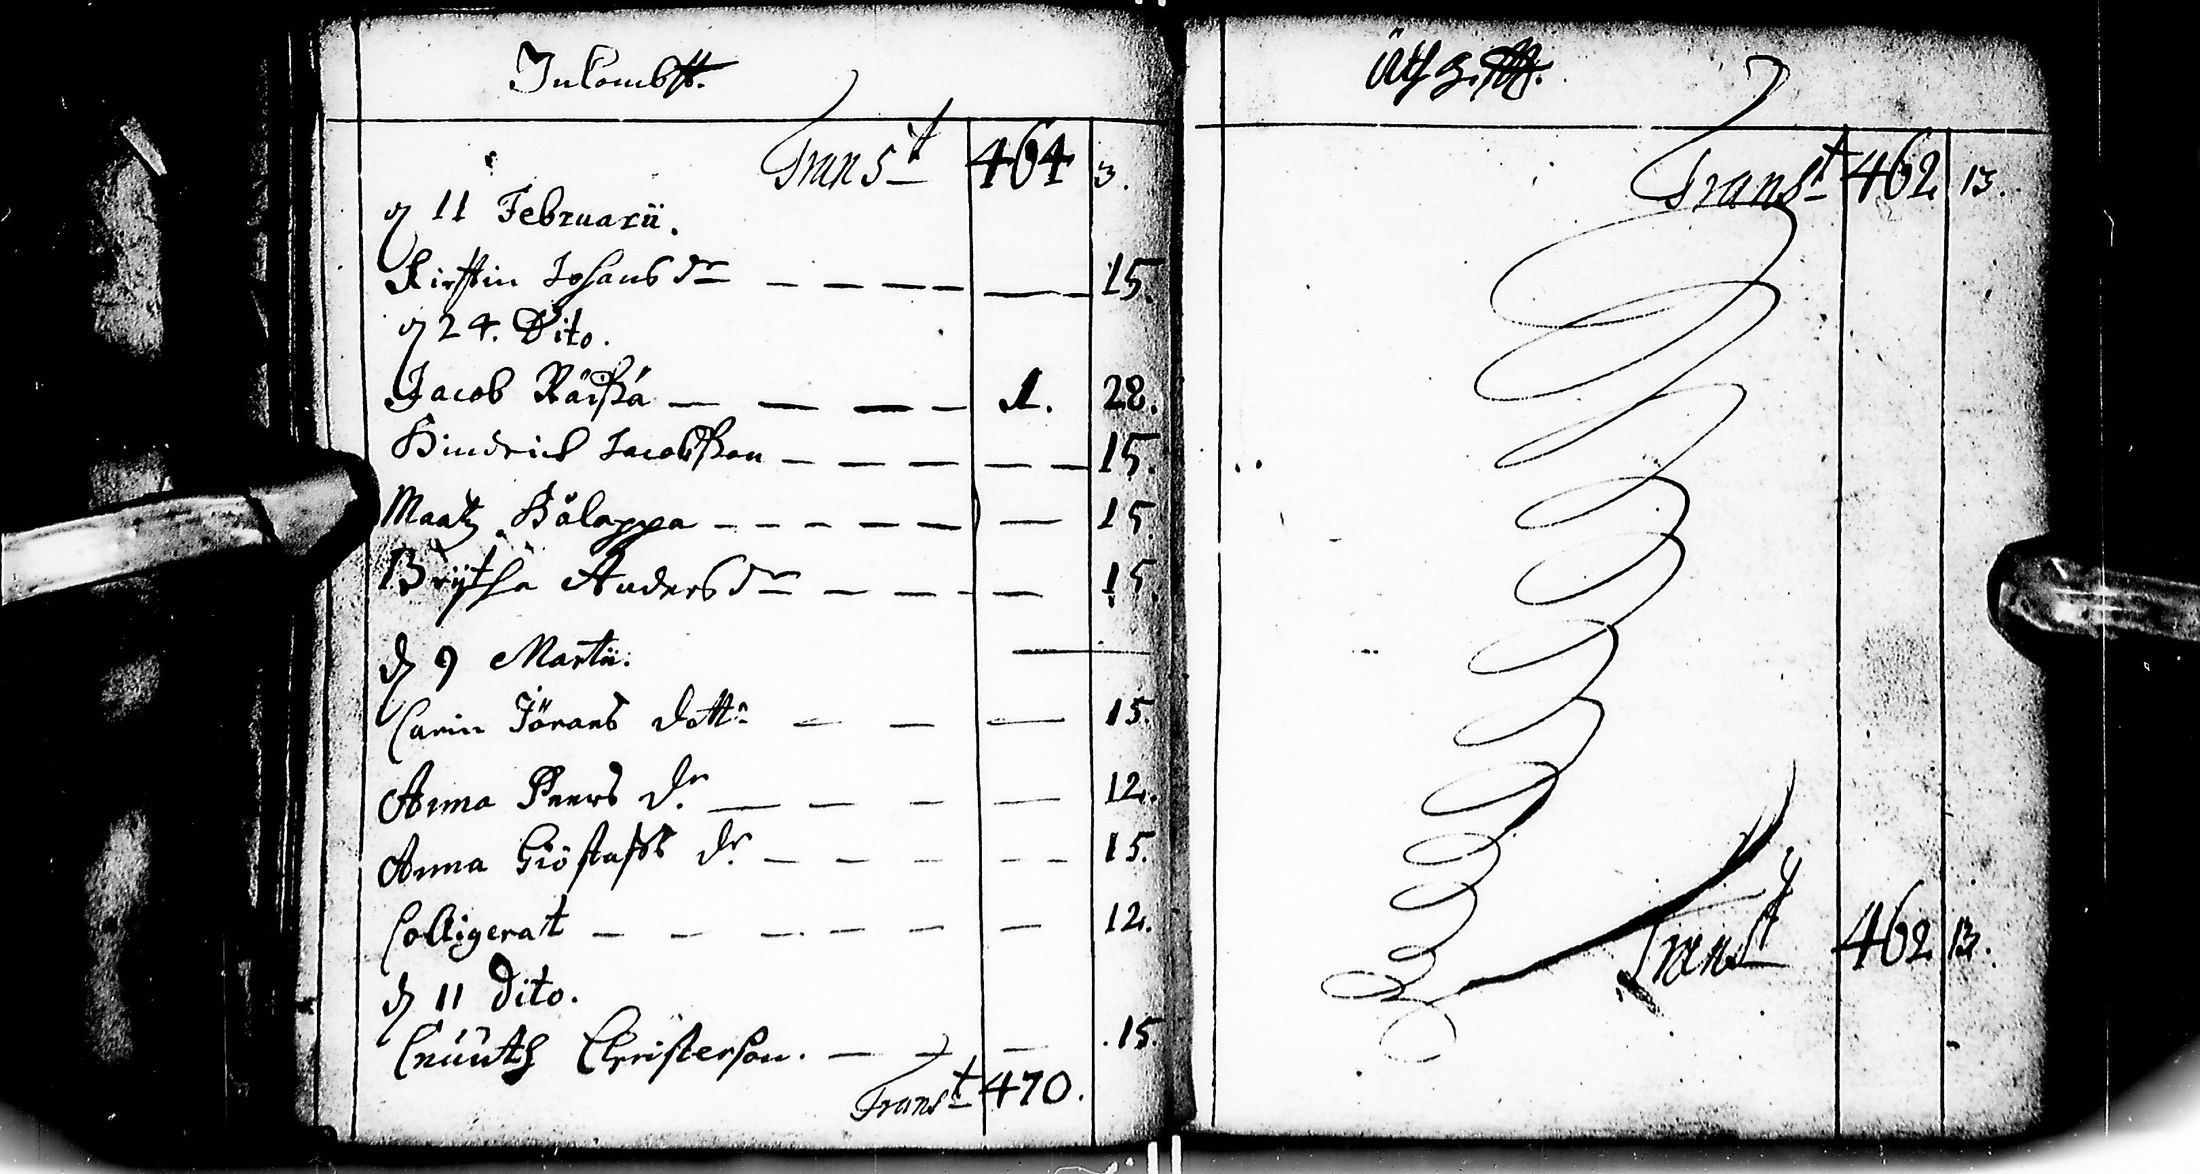 Inkombst.
Transt 464 3.
d 11 Februarii.
Kirstin Johans dr 15.
d 24. Dito.
Jacob Räiskä 1. 28.
Hindrich Jacobsson 15.
Maatz 15.
Brijtha Anders dr 15.
d 9 Martii.
Carin Jörans dottr 15.
Anna Peers dr 12.
Anna Giöstafss dr 15.
Colligerat 12.
d 11 Dito.
Cnuuth Christerson. 15.
Transt 470.
Transt 462 13.
Transt 462 13.